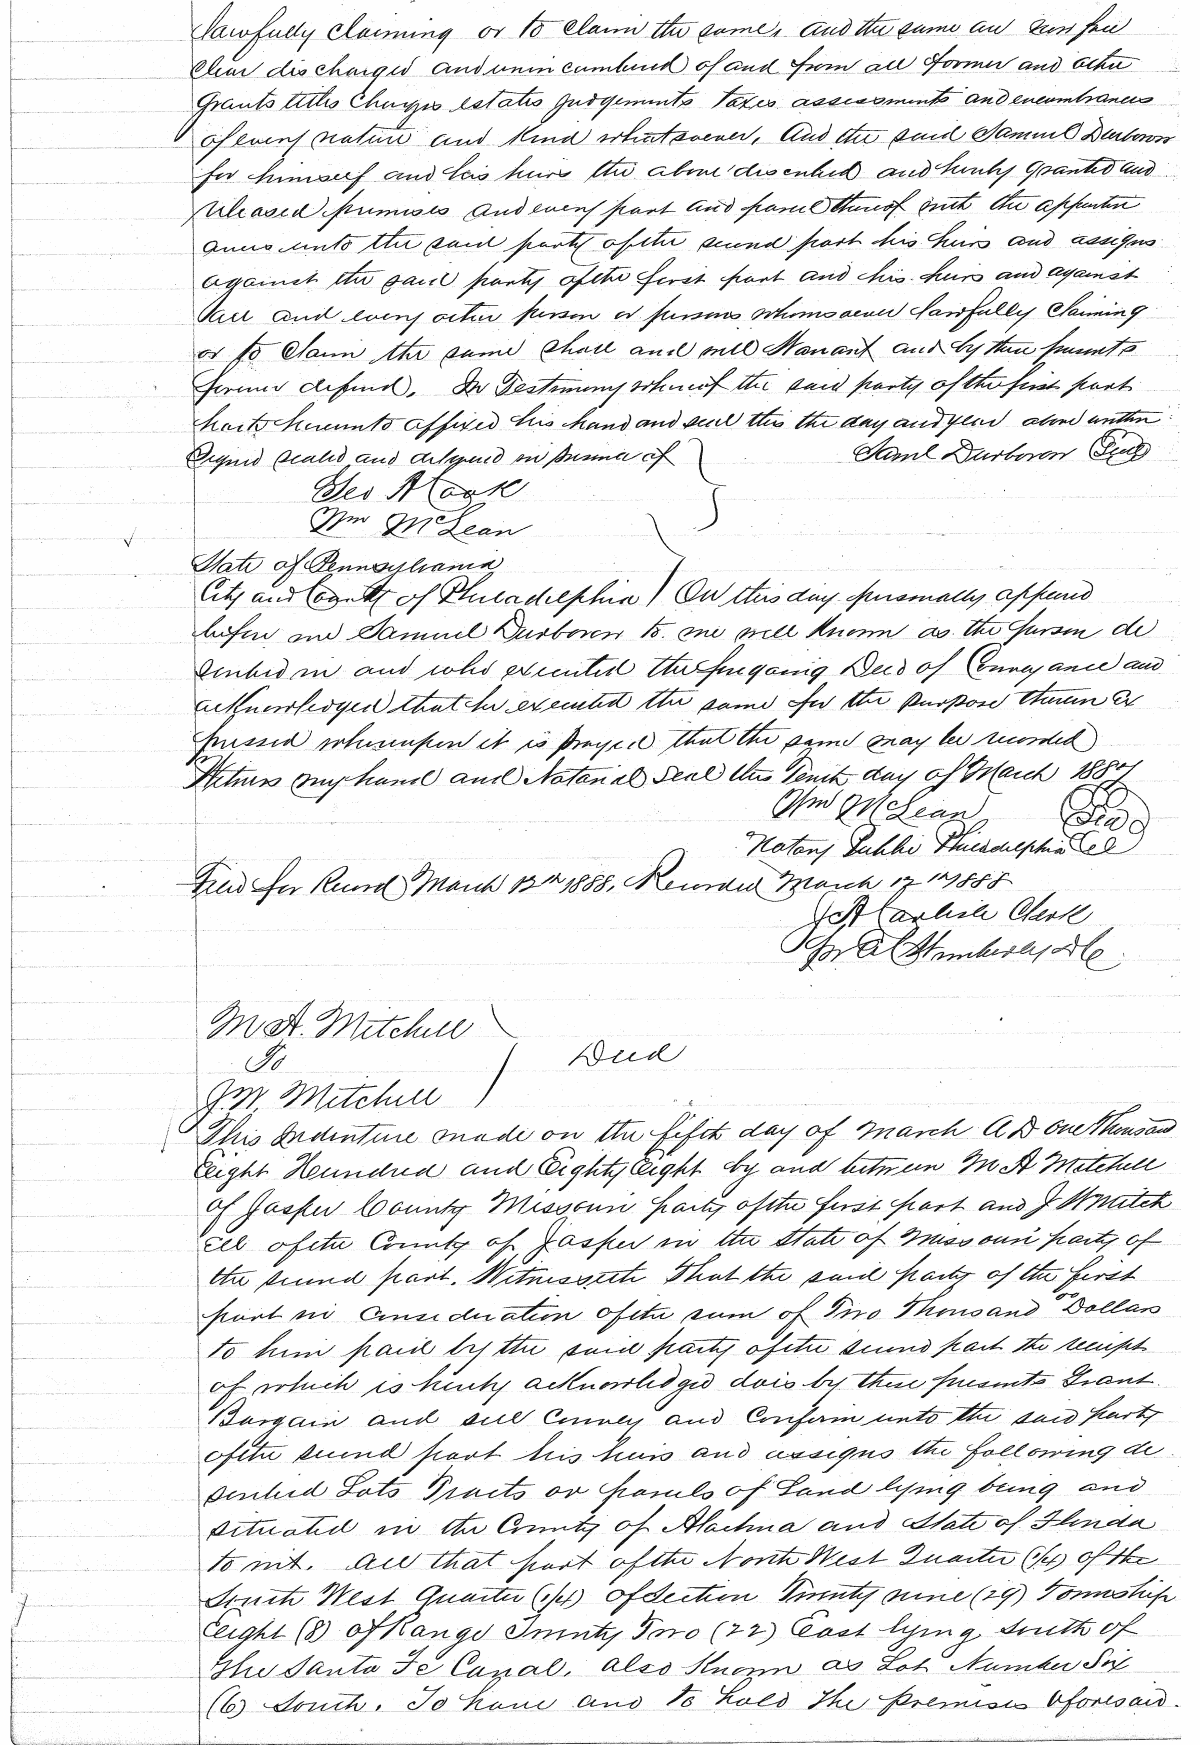 lawfully claiming or to claim the same, and the same are now free
Clear discharged and unincumbered of and from all former and other
Grants titles Charges estates Judgements Taxes assessments and encumbrances
of every nature and Kind whatsoever, And the said Samuel Durborow
for himself and his heirs the above described and hereby Granted and
released premises and every part and parcel thereof with the appurten
ances unto the said party of the second part his heirs and assigns
against the said party of the first part and his heirs and against
all and every other person or persons whomsoever lawfully Claiming
or to Claim the same shall and will Warrant and by these presents
forever defend. In Testimony whereof the said party of the first part
hath hereunto affixed his hand and seal this the day and year above written
Signed sealed and delivered in presence of Saml Durborow Seal
Geo A Cook
Wm McLean
State of Pennsylvania
City and County of Philadelphia ) On this day personally appeared
before me Samuel Durborow to me well Known as the person de
scribed in and who executed the foregoing Deed of Conveyance and
acknowledged that he executed the same for the purpose therein Ex
pressed whereupon it is prayed that the same may be recorded
Witness my hand and Notarial Seal this Tenth day of March 188
Wm McLean Seal
Notary Public Philadelphia
Filed for Record March 13th 1888. Recorded March 17th 1888
Carlisle Clerk
DC
M A. Mitchell
To
Deed
J.W. Mitchell
This Indenture made on the fifth day of March A D one Thousand
Eight Hundred and Eighty Eight by and between M A Mitchell
of Jasper County Missouri party of the first part and J W Mitch
ell of the County of Jasper in the State of Missouri party of
the second part. Witnesseth That the said party of the first
part in Consideration of the sum of Two Thousand 00 Dollars
to him paid by the said party of the second part the receipt
of which is hereby acknowledged does by these presents Grant
Bargain and sell Convey and Confirm unto the said party
of the second part his heirs and assigns the following de
scribed Lots Tracts or parcels of Land lying being and
situated in the County of Alachua and State of Florida
to wit. All that part of the North West Quarter (1/4) of the
South West Quarter (1/4) of Section Twenty nine (29) Township
Eight (8) of Range Twenty Two (22) East lying South of
the Santa Fe Canal. also Known as Lot Number Six
(6) South. To have and to hold the premises aforesaid.